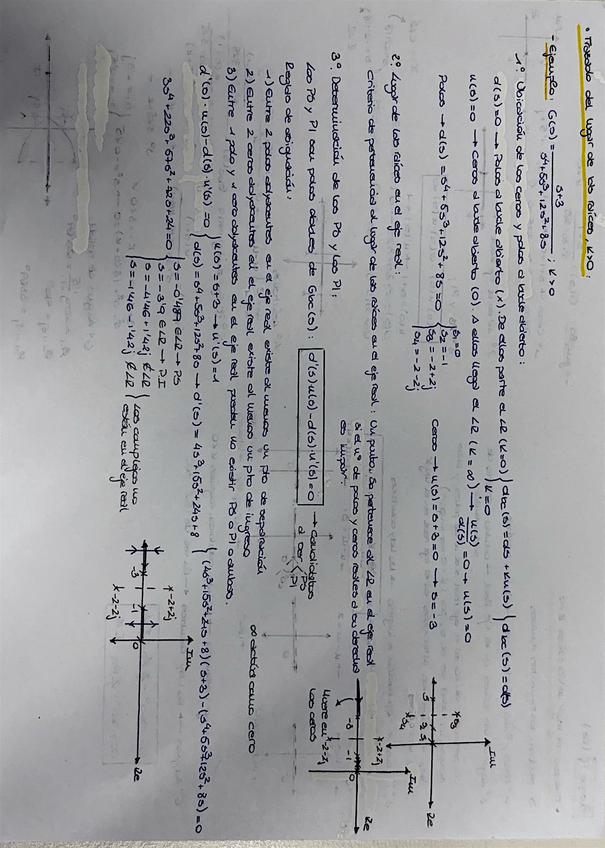 • Trazado del lugar de las raíces, K>0:
- Ejemplo: G(s) = s+3 / s⁴+5s³+12s²+8s ; K>0
1º. Ubicación de los ceros y polos a lazo abierto:
d(s)=0 → Polos a lazo abierto (x). De ellos parte el LR (K=0) } dBC (s) = d(s) + Ku(s) } dBC (s) = d(s)
K=0
u(s)=0 → Ceros a lazo abierto (0). A ellos llega el LR (K=∞) → u(s)/d(s) = 0 → u(s)=0
Polos → d(s) = s⁴+5s³+12s²+8s=0 { s₁=0
s₂=-1
s₃=-2+2j
s₄=-2-2j
Ceros → u(s)=s+3=0 → s=-3
2º. Lugar de las raíces en el eje real:
Criterio de pertenencia al lugar de las raíces en el eje real: Un punto, So pertenece al LR en el eje real
si el nº de polos y ceros reales a su derecha
es impar.
Im
Re
-2+2j
-2-2j
-3
-1
0
los ceros
3º. Determinación de los PS y los PI:
Los PS y PI son polos dobles de GBC(s): d'(s)u(s)-d(s)·u'(s)=0 → Candidatos
a ser < PS
PI
Reglas de asignación:
1) Entre 2 polos adyacentes en el eje real existe al menos un pto de separación
2) Entre 2 ceros adyacentes en el eje real existe al menos un pto de ingreso
∞ actúa como cero
3) Entre 1 polo y 1 cero adyacentes en el eje real pueden no existir PS o PI o ambos.
d'(s)·u(s)-d(s)u'(s)=0 { u(s)=s+3 → u'(s)=1
d(s)=s⁴+5s³+12s²+8s → d'(s)=4s³+15s²+24s+8 } (4s³+15s²+24s+8)(s+3)-(s⁴+5s³+12s²+8s)=0
3s⁴+22s³+57s²+72s+24=0 { s=-0'489 ∈LR → PS
s=-3'9 ∈LR → PI
s=-1'46+1'42j ∉LR
s=-1'46-1'42j ∉LR } Los complejos no
están en el eje real
Im
Re
-2+2j
-2-2j
-3
-1
0